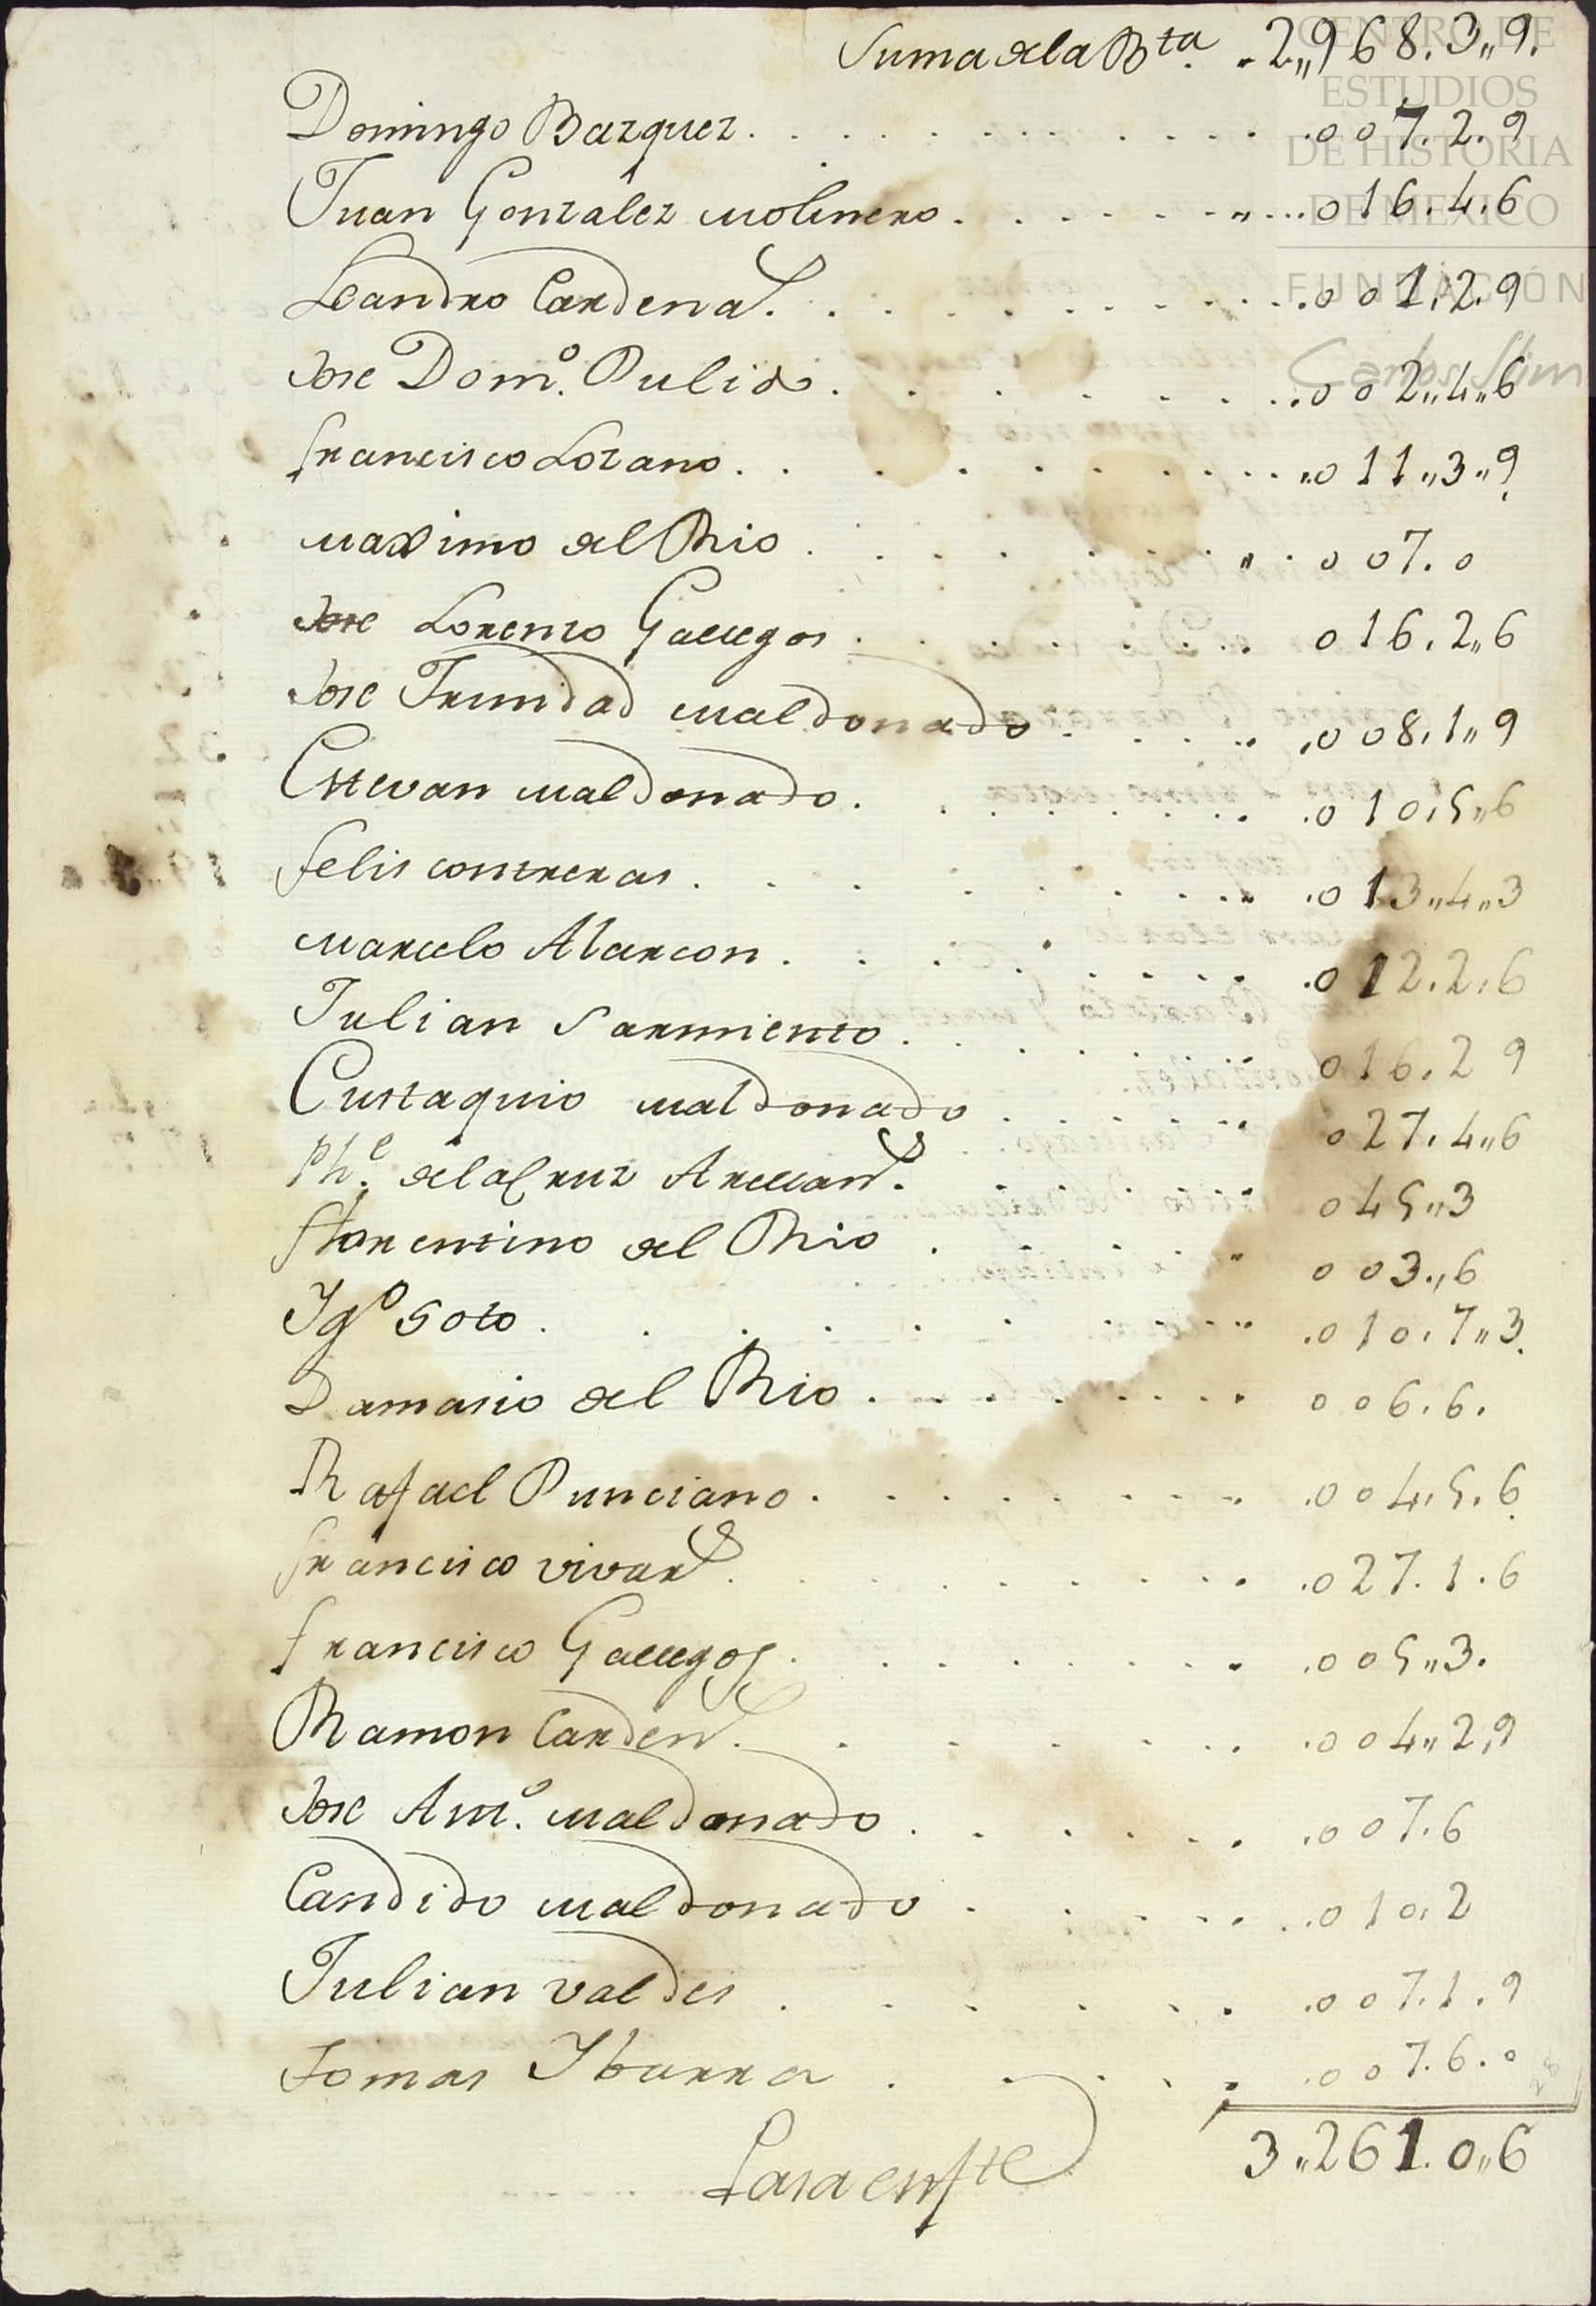 Suma de la Bta. 2,,968.3,,9.
Domingo Bazquez. 007.2.9
Juan Gonzalez Molinero. 016.4.6
Leandro Cardenas. 001.2.9
Jose Domo. Pulido. 002,,4,,6
Francisco Lozano. 011,,3,,9
Maximo del Rio. 007.0
Jose Lorenzo Gallegos. 016.2,,6
Jose Trinidad Maldonado. 008.1,,9
Estevan Maldonado. 010.5,,6
Felis contreras. 013,,4,,3
Marcelo Alarcon. 012.2.6
Julian Sarmiento. 016.2 9
Eustaquio Maldonado. 027.4,,6
Phe. de la Cruz Arellans. 045,,3
Florentino del Rio. 003.,6
Ygo Soto. 010.7,,3.
Damasio del Rio. 006.6.
Rafael Punciano. 004.5.6
Francisco vivans. 027.1.6
Francisco Gallegos. 005,,3.
Ramon Cardens. 004,,2,9
Jose Anto. Maldonado. 007.6
Candido Maldonado. 010.2
Julian valdes. 007.1.9
Tomas Ybarra. 007.6.0
3,,261.0,,6
Pasa enfte
CENTRO DE
ESTUDIOS
DE HISTORIA
DE MEXICO
FUNDACIÓN
Carlos Slim